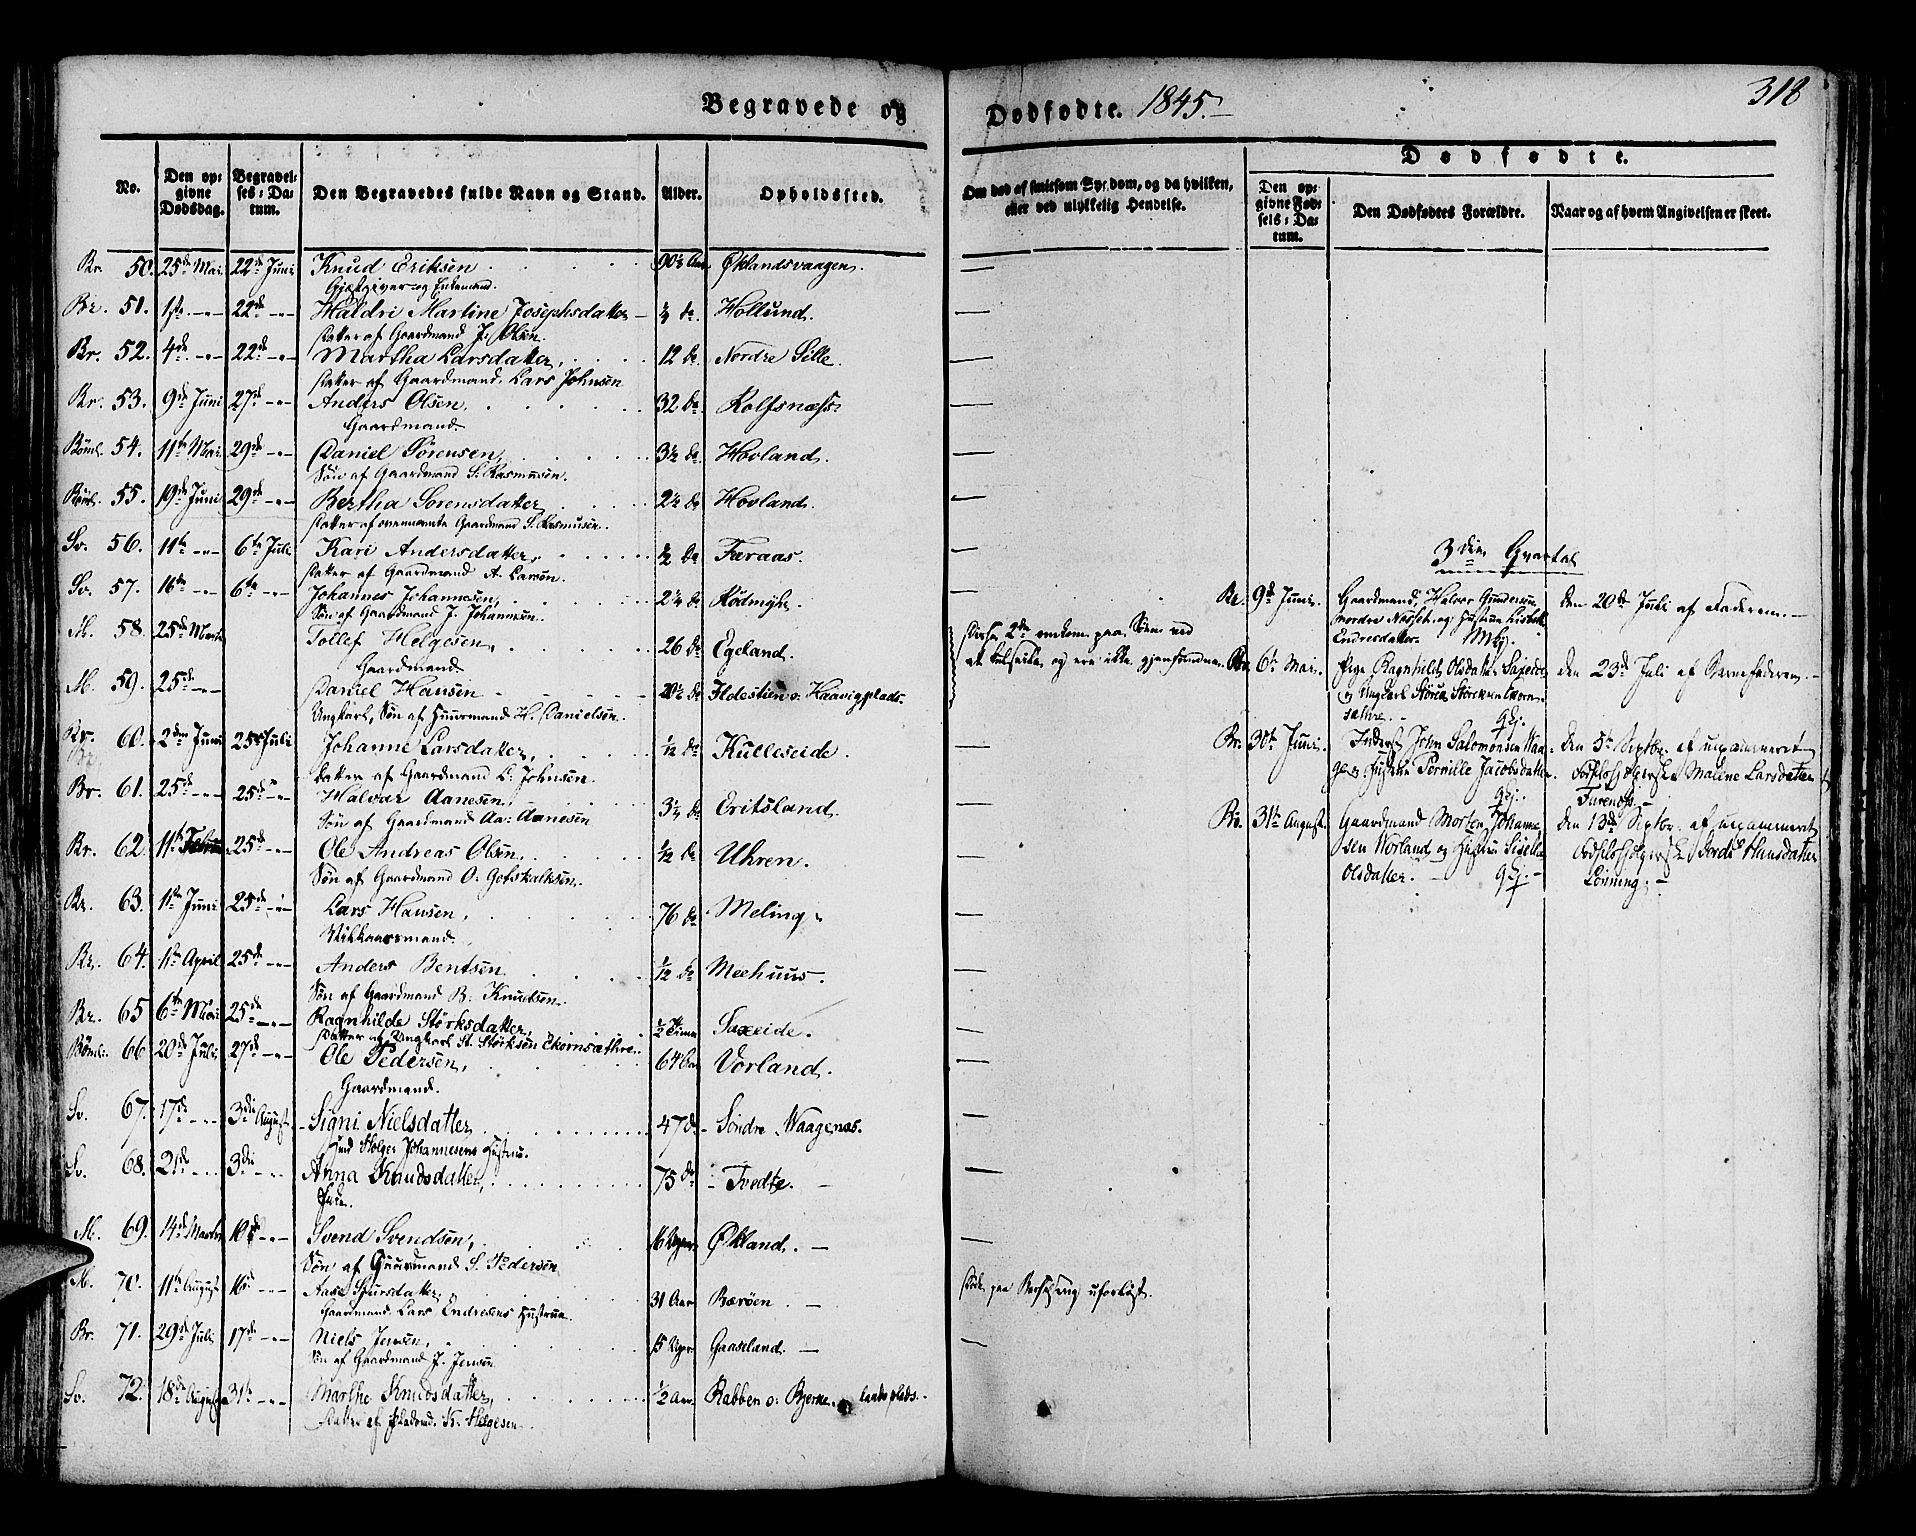 Begravede og Dødfødte. 1845.
318
No.
Den opgivne Dødsdag.
Begravelses-Datum.
Den Begravedes fulde Navn og Stand.
Alder.
Opholdssted.
Om død af smitsom Sygdom, og da hvilken, eller ved ulykkelig Hendelse.
Dødfødte.
Den opgivne Fødsels-Datum.
Den Dødfødtes Forældre.
Naar og af hvem Angivelsen er skeet.
Br. 50. 25de Mai. 22de Juni Knud Eriksen 90½ Aar Øklandsvaagen.
Gjæstgiver og Enkemand.
Br. 51. 1ste 22de Haldri Martine Josephsdatter Hollund.
Datter af Gaardmand J. Olsen.
Br. 52. 4de 22de Martha Larsdatter, 12 do Nordre Lille.
Datter af Gaardmand Lars Johnsen
Br. 53. 9de Juni 27de Anders Olsen, 32 do Rolfsnæss
Gaardmand.
Böml. 54. 11te Mai 29de Daniel Sørensen, 3½ do Hovland.
Søn af Gaardmand S. Rasmusen.
Böml. 55. 19de Juni 29de Bertha Sorensdatter, 2½ do Hovland.
Datter af ovennævnte Gaardmand S. Rasmusen.
Sv. 56. 11te 6te Juli Kari Andersdatter, ½ do Færaas.
Datter af Gaardmand A. Larsen.
Sv. 57. 16de 6te Johannes Johannesen, 2¼ do Rödmyhr.
Søn af Gaardmand J. Johannesen.
M. 58. 25de Marts Tollef Helgesen, 26 do Egeland.
Gaardmand
M. 59. 25de Daniel Hansen 20½ do Holestien o: Haavigplads.
Ungkarl, Søn af Huusmand H. Danielsen.
Br. 60. 2den Juni 25de Juli Johanne Larsdatter, 1/12 do Kulleseide.
Datter af Gaardmand L. Johnsen.
Br. 61. 25de 25de Halvar Aanesen, Eritsland.
Søn af Gaardmand Aa: Aanesen
Br. 62. 11te 25de Ole Andreas Olsen, 1/12 do Uhren.
Søn af Gaardmand O. Gotskalksen.
Br. 63. 11te Juni 25de Lars Hansen, 76 do Meling.
Vilkaarsmand.
Br. 64. 11te April 25de Anders Bentsen 1/12 do Meehuus.
Søn af Gaardmand B. Knudsen.
Br. 65 6te Mai 25de Ragnhilde Störksdatter, ½ Time Saxeide.
Datter af Ungkarl St. Störksen Ekornsæthre.
Böml. 66. 20de Juli 27de Ole Pedersen, 64 Aar Vorland.
Gaardmand.
Sv. 67. 17de 3die August. Signi Nielsdatter 47 do Söndre Waagenæs.
Huusmd Holger Johannesens Hustru.
Sv. 68. 21de 3die Anna Knudsdatter, 75 do Tvedte.
Enke.
M. 69. 14de Marts 10de Svend Svendsen, 16 Uger Økland.
Søn af Gaardmand S. Pedersen
M. 70. 11te August 10de Aase Sjursdatter 31 Aar Bærøen.
Gaardmand Lars Endresens Hustrue.
Br. 71. 29de Juli 17de Niels Jensen, 15 Uger Gaaseland.
Søn af Gaardmand J. Jensen
Sv. 72. 18de August 31te Marthe Knudsdatter, ½ Aar Rabben o: Bjerne- lands plads.
Datter af Pladsmd. K. Helgesen.
Disse 2de omkom paa Søen ved
at kulseile, og ere ikke gjenfundne.
Døde paa Barselseng uforløst.
3die Qvartal
Br. 9de Juni. Gaardmand, Halvor Gundersen Den 20de Juli af Faderen.
nordre Næsset og Hustrue Lisbeth
Endresdatter.
Br. 6te Mai. Pige Ragnhild Olsdatter Saxeide Den 23de Juli af Barnefaderen.
og Ungkarl Störk Störksen Ekorn-
sæthre.
Br. 30te Juni. Inderst John Salomonsen Vaa- Den 5te Septbr. af uexamineret
ge og Hustru Pernille Jacobsdatter. Fødselshjelperske Malene Larsdatter
Furenæss
Br. 31te August. Gaardmand Morten Johanne- Den 13de Septbr. af uexamineret
sen Vorland og Hustru Sigella Fødselshjelperske Jordis Hansdatter
Olsdatter. Lönning.